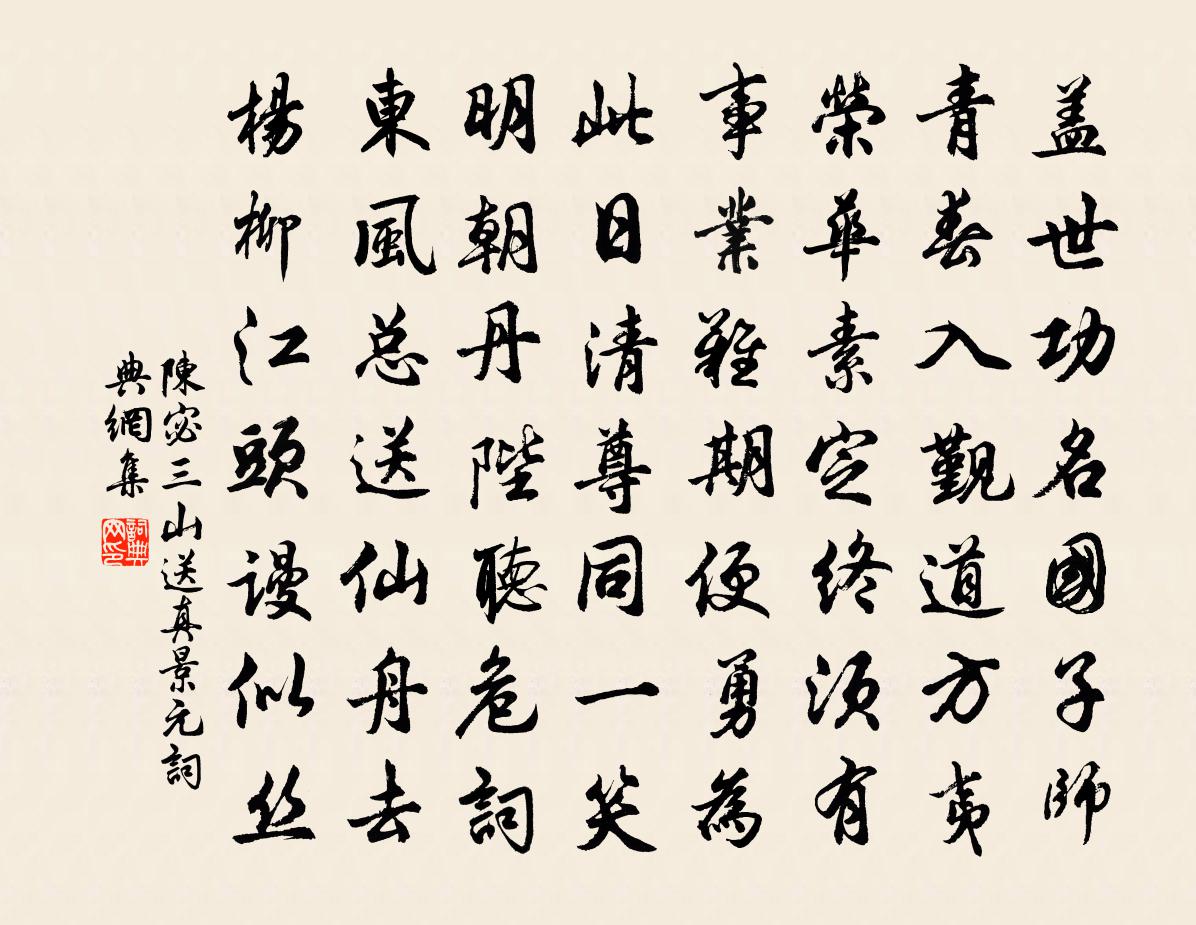 盖世功名國子師
青春入覲道方夷
榮華素定終須有
事業難期便勇為
此日清尊同一笑
明朝丹陛聽危詞
東風总送仙舟去
楊柳江頭謾似丝
陳宓三山送真景元詞
典網集
詞典网印